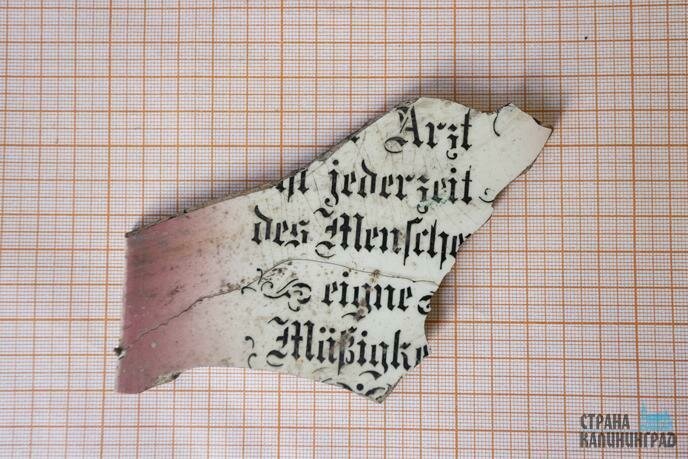 Arzt
jederzeit
des Mensche
eigne
Mäßigke
СТРАНА
КАЛИНИНГРАД